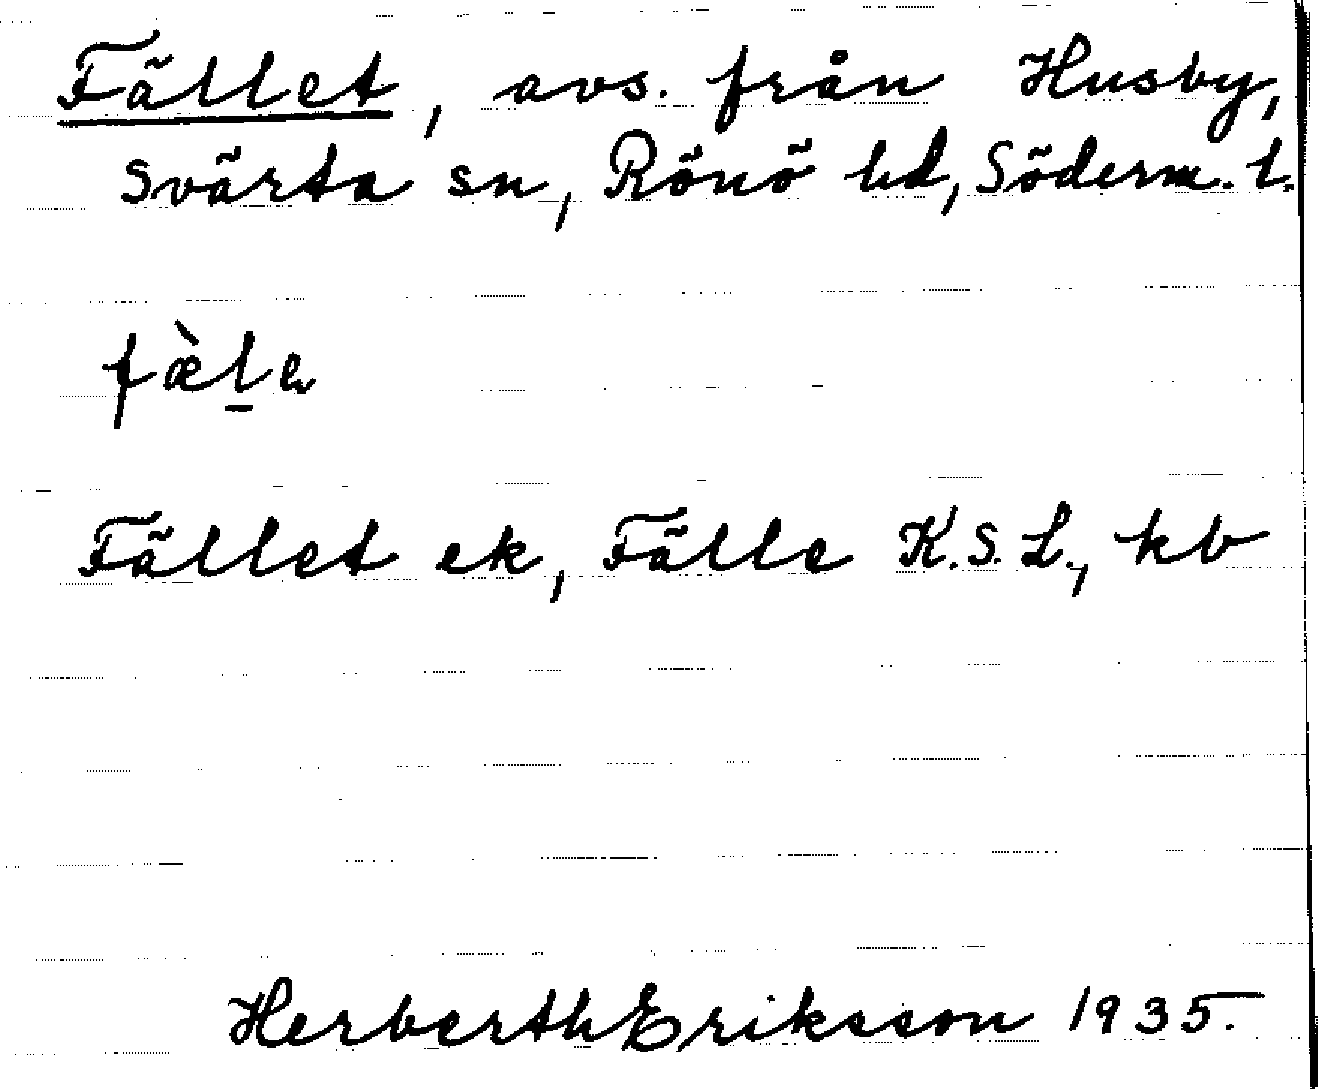 Fället, avs. från Husby,
Svärta sn, Rönö hd, Söderm. l.
fæ̀l̲e
Fället ek, Fälle K.S.L., kb
Herberth Eriksson 1935.